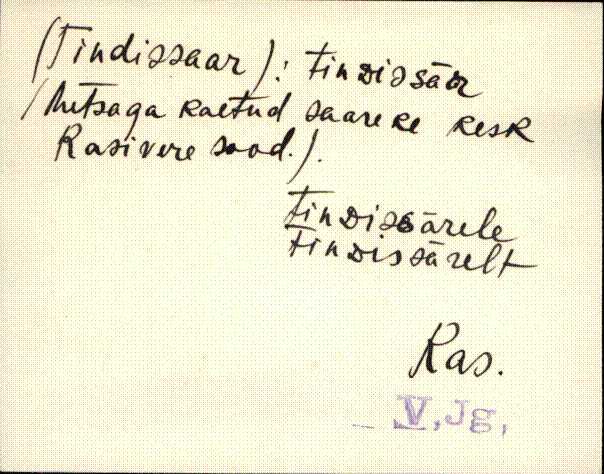 (Tindissaar): tinDissār
(Metsaga kaetud saareke kesk
Rasivere sood.).
tinDissārele
tinDissārelt
Ras.
V, Jg,